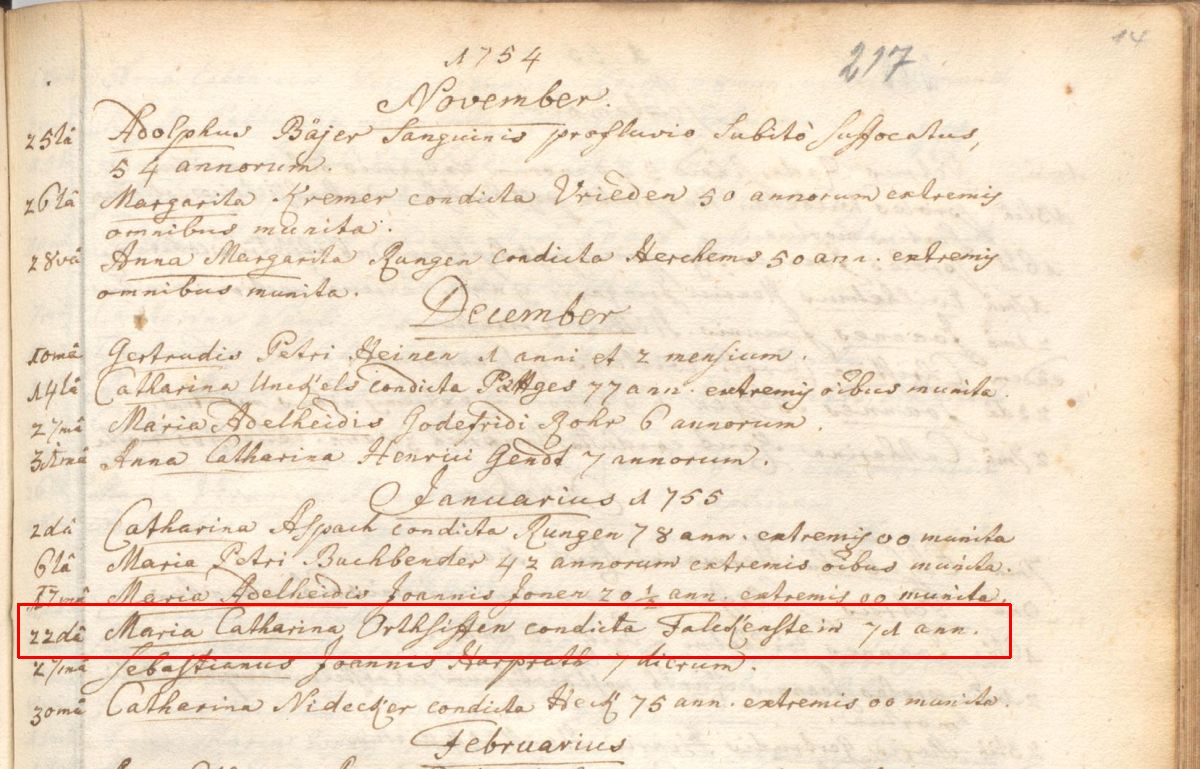 14
217
1754
November.
25tâ Adolphus Bäjer Sanguinis profluvio subitò suffocatus,
54 annorum.
26tâ Margarita Kremer condicta Vrieden 50 annorum extremis
omnibus munita.
28vâ Anna Margarita Rungen condicta Herchems 50 ann. extremis
omnibus munita.
December
10mâ Gertrudis Petri Heinen 1 anni et 2 mensium.
14tâ Catharina Unckels condicta Pättges 77 ann. extremis oibus munita.
27mâ Maria Adelheidis Godefridi Rohr 6 annorum.
31mâ Anna Catharina Henrici Gendt 7 annorum.
Januarius 1755
2dâ Catharina Aspach condicta Rungen 78 ann. extremis oo munita
6tâ Maria Petri Buchbender 42 annorum extremis oibus munita.
17mâ Maria Adelheidis Joannis Jonen 20 ½ ann. extremis oo munita.
22dâ Maria Catharina Orthsiffen condicta Falckenstein 71 ann.
27mâ Sebastianus Joannis Harprath 7 dierum.
30mâ Catharina Nidecker condicta Heck 75 ann. extremis oo munita.
Februarius